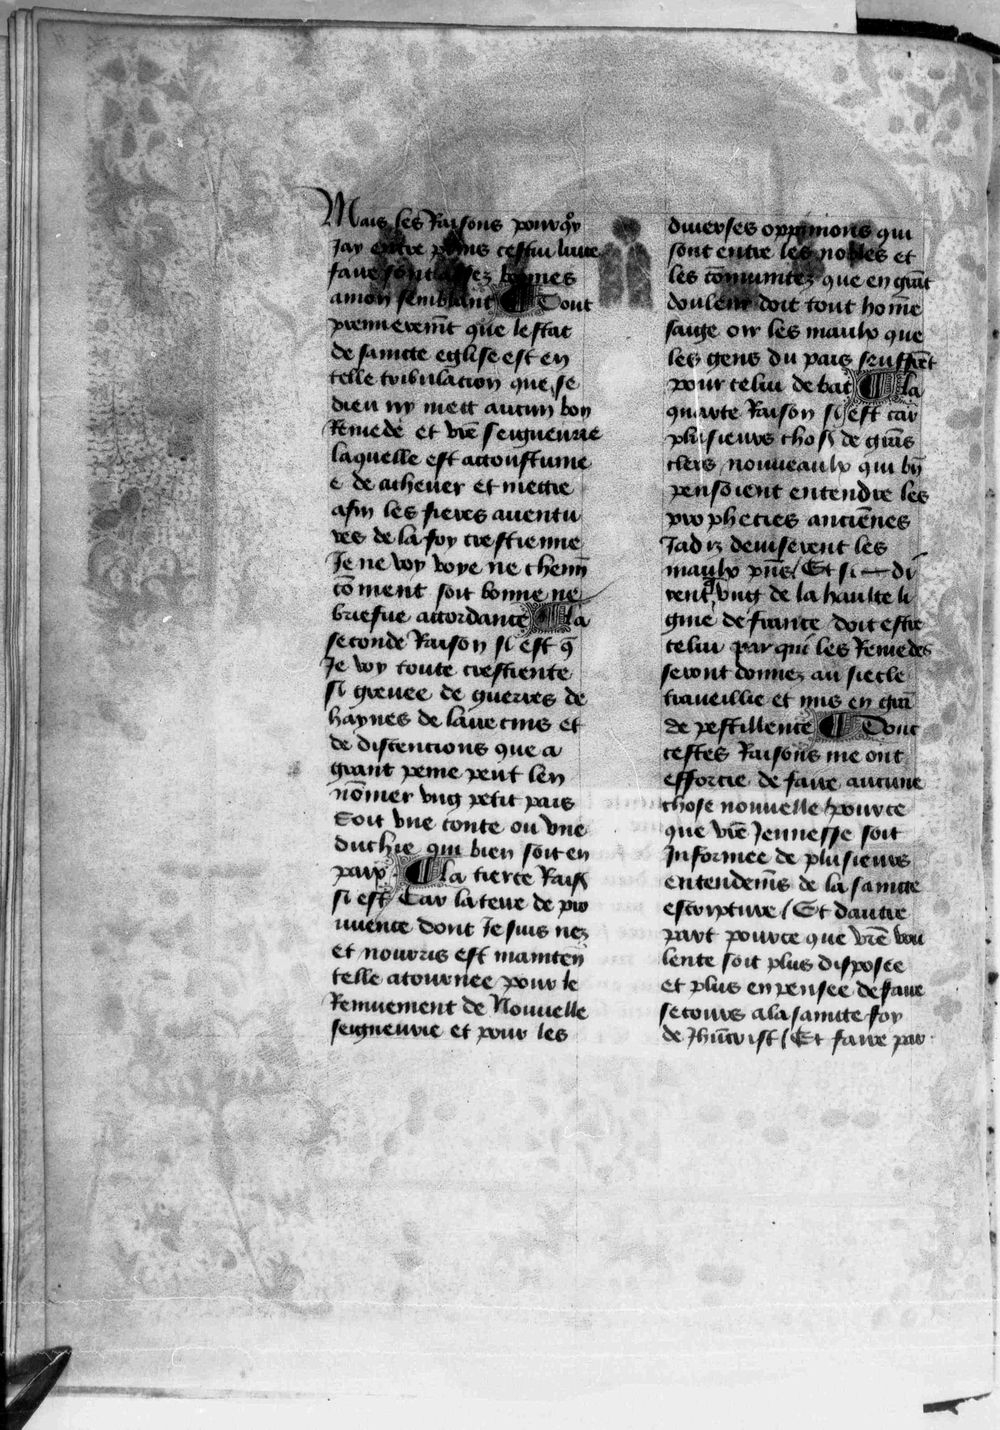 Mais les Raisons pourqͦy
Jay entre prins cestui liure
faire sont assez bonnes
amon semblant ¶ Tout
premieremẽt que lestat
de saincte eglise est en
telle tribulacion que se
dieu ny mett aucun bon
Remede et vr̃e seigneurie
laquelle est accoustume
e de acheuer et mettre
afin les fieres auentu
res de la foy crestienne
Je ne voy voye ne chemĩ
cõment soit bonne ne
briefue accordance ¶ la
seconde Raison si est q̃
Je voy toute crestiente
si greuee de guerres de
haynes de larrecins et
de discencions que a
grant peine peut len
nõmer vng petit pais
Soit vne conte ou vne
duchie qui bien soit en
paix ¶ la tierce Raisõ
si est Car la terre de pro
uuence dont Je suis nez
et nourris est maintẽñ
telle atournee pour le
Remuement de Nouuelle
seigneurie et pour les
diuerses oppinions qui
sont entre les nobles et
les cõmunitez que en grãt
douleur doit tout hom̃e
saige oir les maulx que
les gens du pais seuffrẽt
pour celui debat ¶ la
quarte Raison si est car
plusieurs choses de grãs
clers nouueaulx qui biẽ
pensoient entendre les
propheties anciẽnes
Jadiz deuiserent les
maulx pñs / Et si di
rent q̃ vng de la haulte li
gnie de france doit estre
celui par qui les Remedes
seront donnez au siecle
trauellie et mis en grã
de pestillence ¶ Dont
cestes Raisons me ont
efforcie de faire aucune
chose nouuelle / pource
que vr̃e Jennesse soit
Informee de plusieurs
entendemẽs de la saincte
escripture / Et dautre
part pource que vr̃e vou
lente soit plus disposee
et plus en pensee de faire
secours a la saincte foy
de Jhũcrist / Et faire par